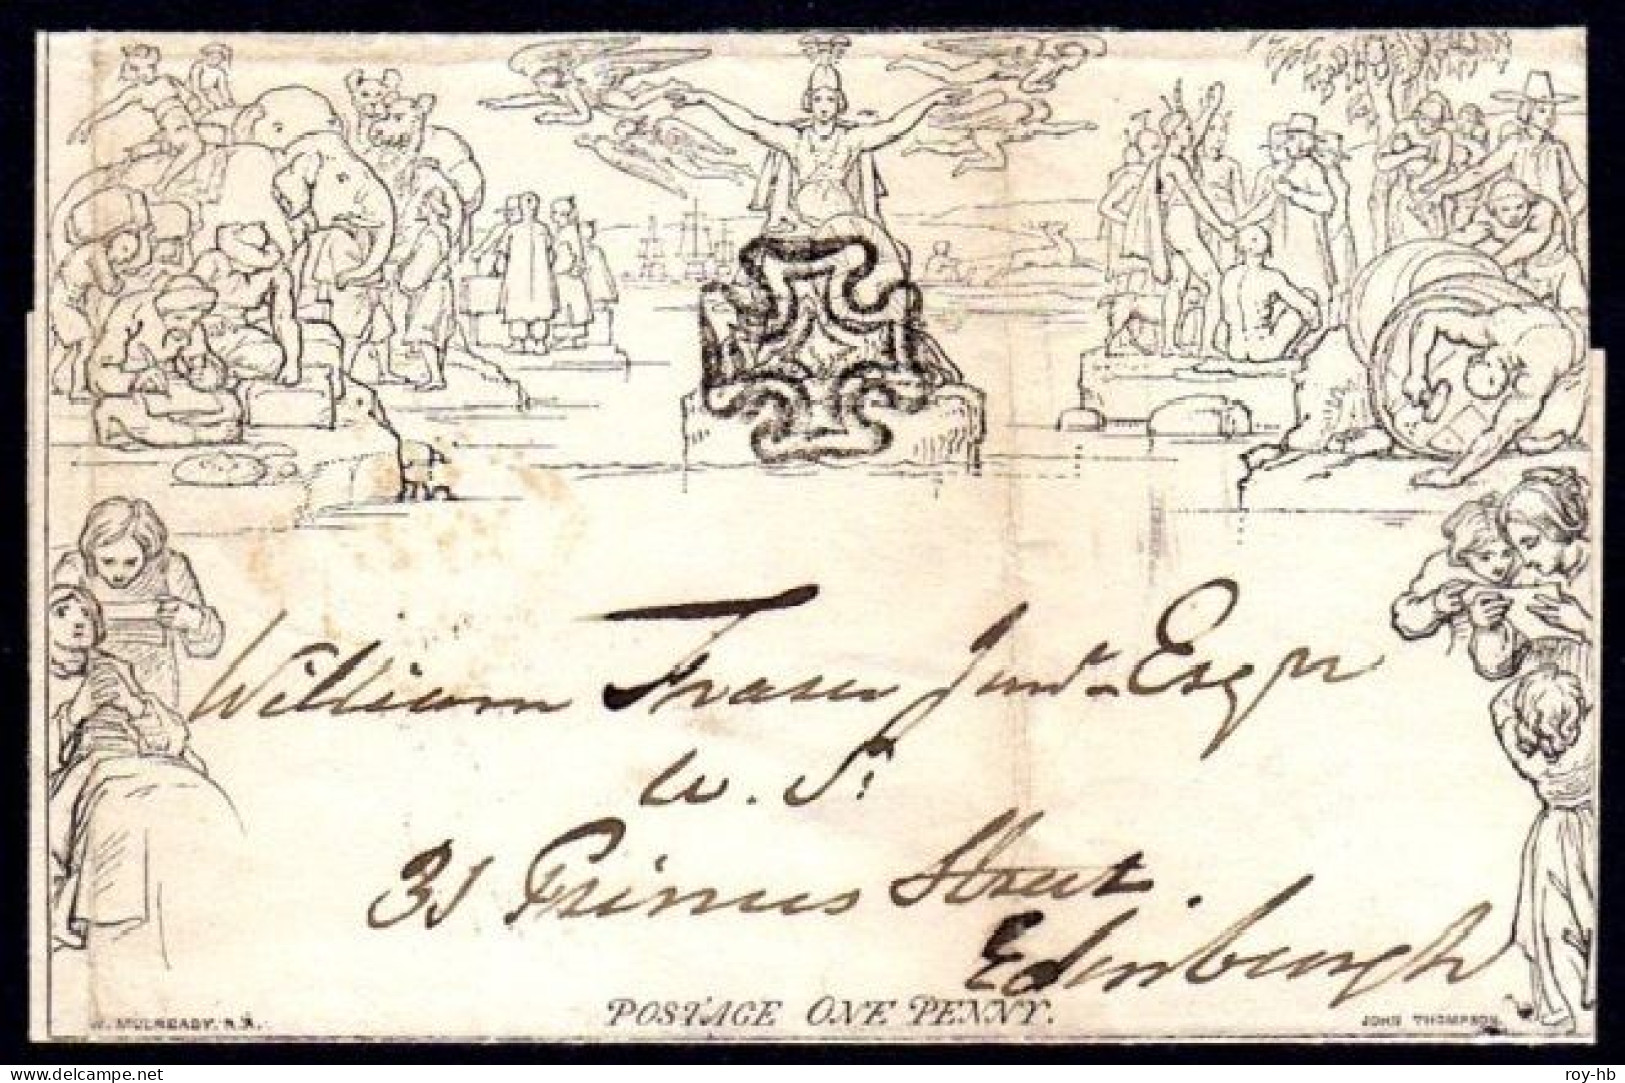 William Fraser Junr Esqr
W. S.
31 Princes Street
Edinburgh
POSTAGE ONE PENNY.
W. MULREADY. R.A.
JOHN THOMPSON
www.delcampe.net
roy-hb